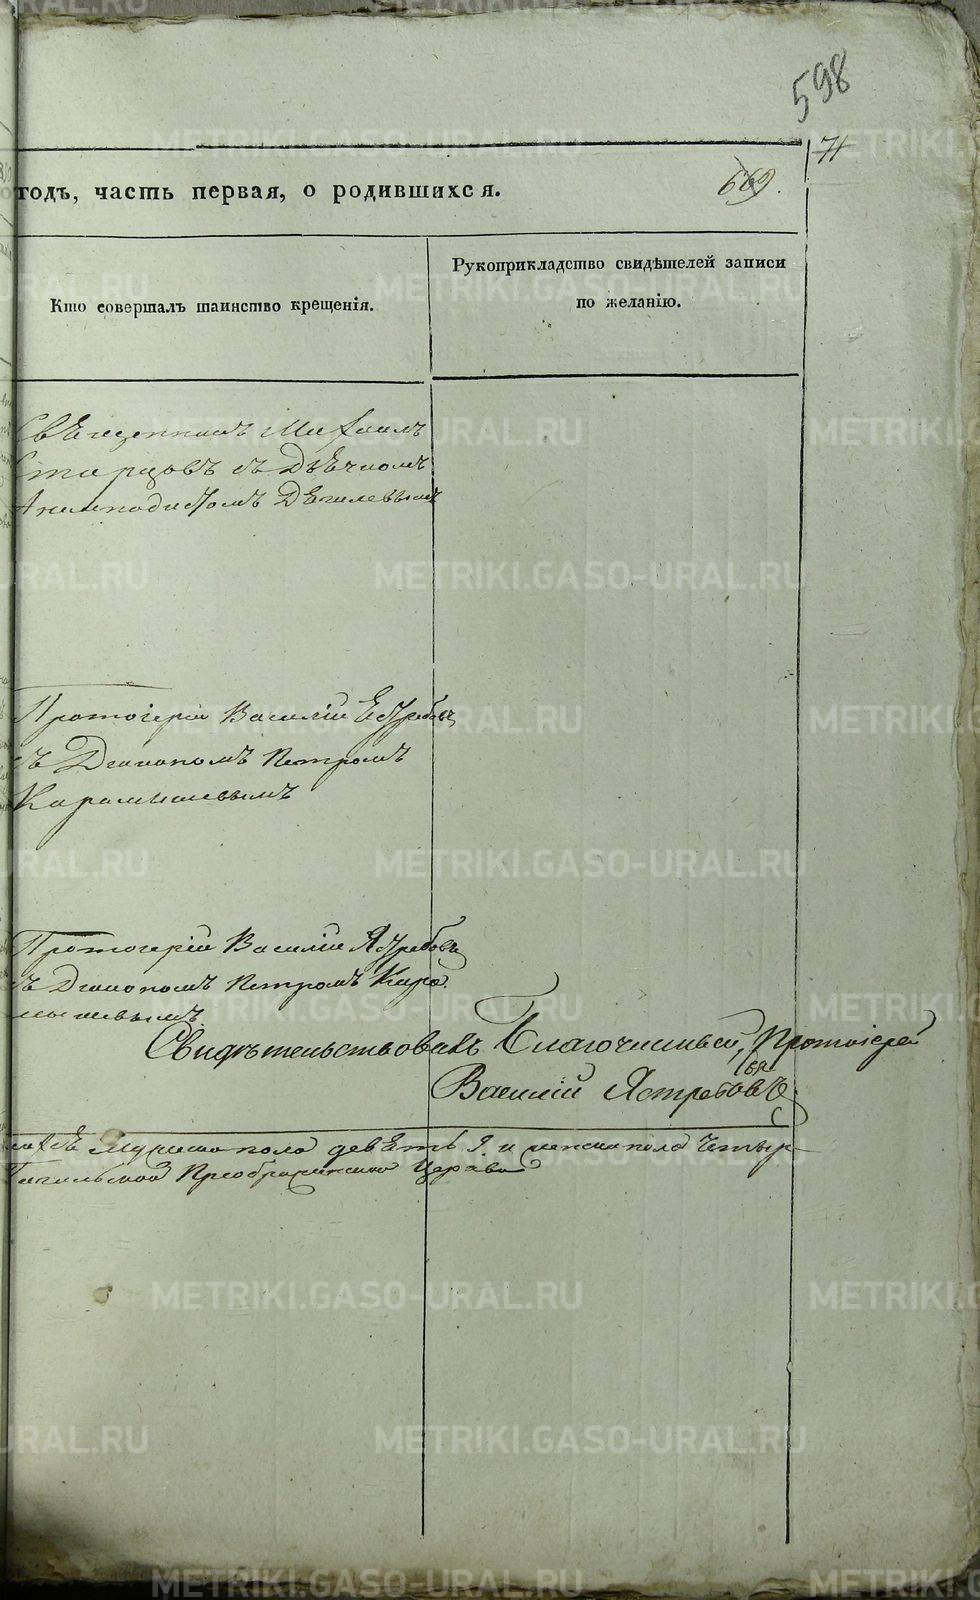 598
71
годъ, часть первая, о родившихся.
669.
Кто совершалъ таинство крещенія.
Рукоприкладство свидѣтелей записи
по желанію.
Священникъ Михаилъ
Старцовъ съ Дьячкомъ
Протоіерей Василій Ястребовъ
съ Діакономъ Петромъ
Карамышевымъ
Протоіерей Василій Ястребовъ
съ Діакономъ Петромъ Кара
мышевымъ
Свидѣтельствовалъ Благочинный, Протоіерей
Василій Ястребовъ
мужеска пола девять 9. и женска пола четыр-
Тагильской Преображенской Церкви
METRIKI.GASO-URAL.RU